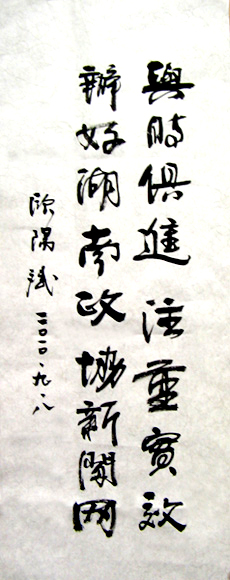 與時俱進 注重實效
辦好湖南政協新聞网
歐陽斌 二〇一〇.九.八